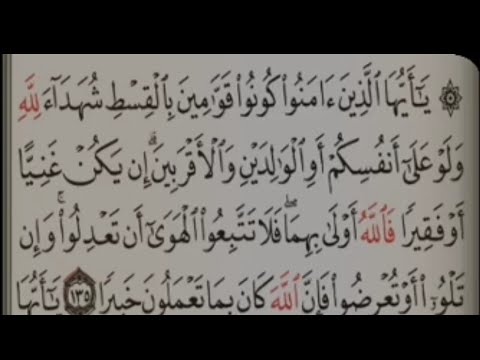 ۞ يَـٰٓأَيُّهَا ٱلَّذِينَ ءَامَنُوا۟ كُونُوا۟ قَوَّٰمِينَ بِٱلْقِسْطِ شُهَدَآءَ لِلَّهِ
وَلَوْ عَلَىٰٓ أَنفُسِكُمْ أَوِ ٱلْوَٰلِدَيْنِ وَٱلْأَقْرَبِينَ ۚ إِن يَكُنْ غَنِيًّا
أَوْ فَقِيرًا فَٱللَّهُ أَوْلَىٰ بِهِمَا ۖ فَلَا تَتَّبِعُوا۟ ٱلْهَوَىٰٓ أَن تَعْدِلُوا۟ ۚ وَإِن
تَلْوُۥٓا۟ أَوْ تُعْرِضُوا۟ فَإِنَّ ٱللَّهَ كَانَ بِمَا تَعْمَلُونَ خَبِيرًا ١٣٥ يَـٰٓأَيُّهَا